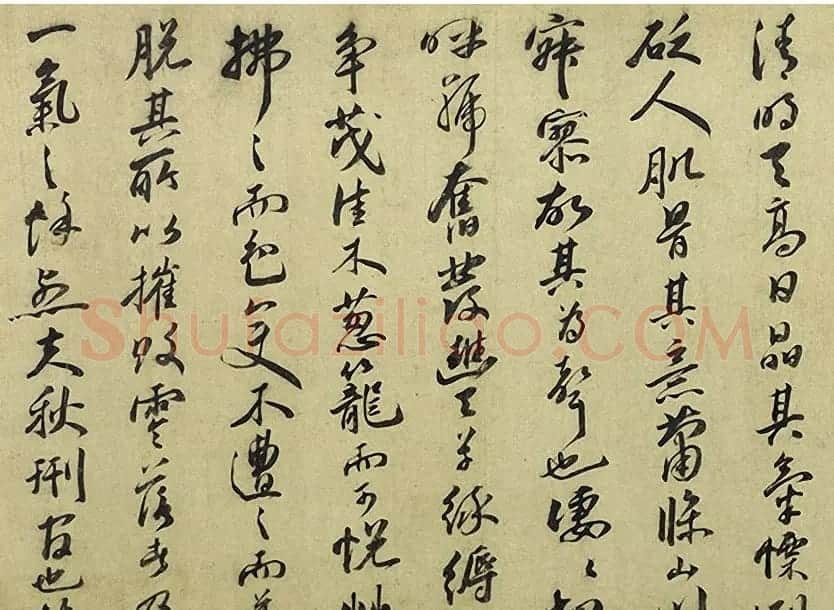 清明天高日晶其氣慄
砭人肌骨其意蕭條山
寂寥故其為聲也淒淒切
呼號奮發豐草綠縟
爭茂佳木葱籠而可悅草
拂之而色變木遭之而葉
脫其所以摧敗零落者乃
一氣之餘烈夫秋刑官也
Shufaziliao.COM